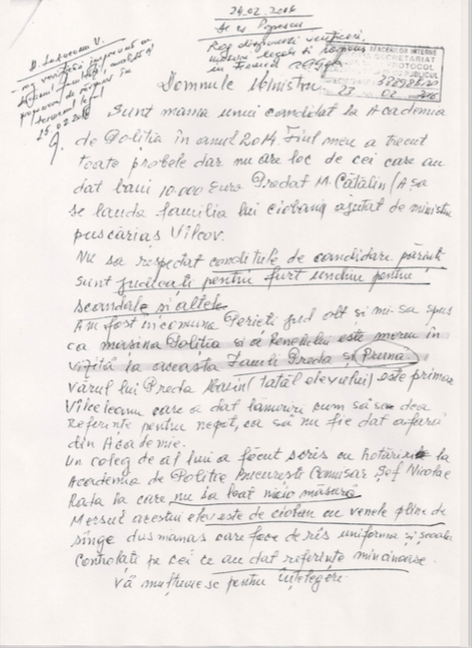 24.02.2016
Popescu
Rog dispuneți verificări,
măsuri legale și răspuns
în termen legal
D.
25.02.2016
AFACERILOR INTERNE
SECRETARIAT
PROTOCOL
PUBLICUL
23 02 2016
Domnule Ministru,
Sunt mama unui candidat la Academia
de Poliția în anul 2014. Fiul meu a trecut
toate probele dar nu are loc de cei care au
dat bani 10.000 Euro Predat M. Cătălin (Așa
se lauda familia lui cioban ajutat de ministru
puscărias Vîlcov.
Nu sa respectat condițiile de candidare părinți
sunt judicați pentru furt unchiu pentru
scandale și altele
Am fost in comuna Perieti jud olt si mi-sa spus
ca masina Poliția si a Renelului este mereu în
vizită la aceasta Famili Preda și Pruna
vărul lui Preda Marin (tatăl elevului) este primar
Vîlceleanu care a dat lămuriri cum să se dea
Referințe pentru nepot, ca să nu fie dat afară
din Academie.
Un coleg de al lui a făcut scris cu hotărîre la
Academia de Poliție București Comisar Șef Nicolae
Rata la care nu sa luat nicio măsură
Mersul acestui elev este de cioban cu venele pline de
sînge dusmanas care face de rîs uniforma și școala
Controlați pe cei ce au dat referințe mincinoase.
Vă mulțumesc pentru înțelegere.